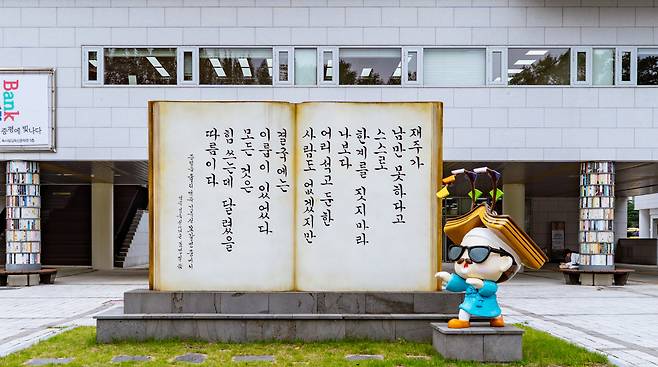 재주가
남만 못하다고
스스로
한계를 짓지마라
나보다
어리석고 둔한
사람도 없겠지만
결국에는
이룸이 있었다
모든 것은
힘 쓰는데 달렸을
따름이다
Bank
증평에 빛나다